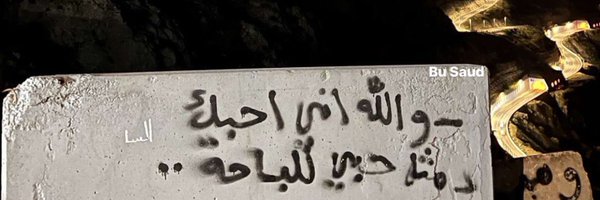 Bu Saud
– والله اني احبك
مثل حبي للباحة ..